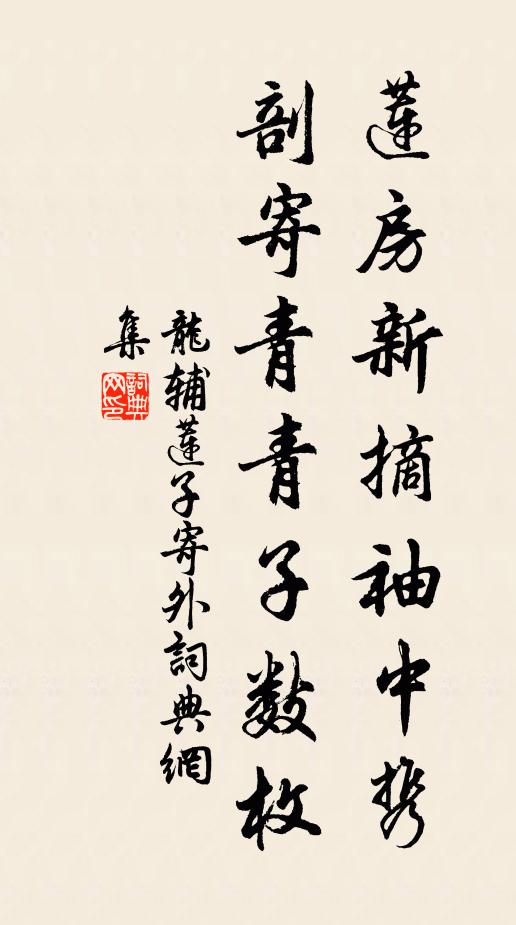 蓮房新摘袖中携
剖寄青青子数枚
龍辅蓮子寄外詞典網
集
詞典网印